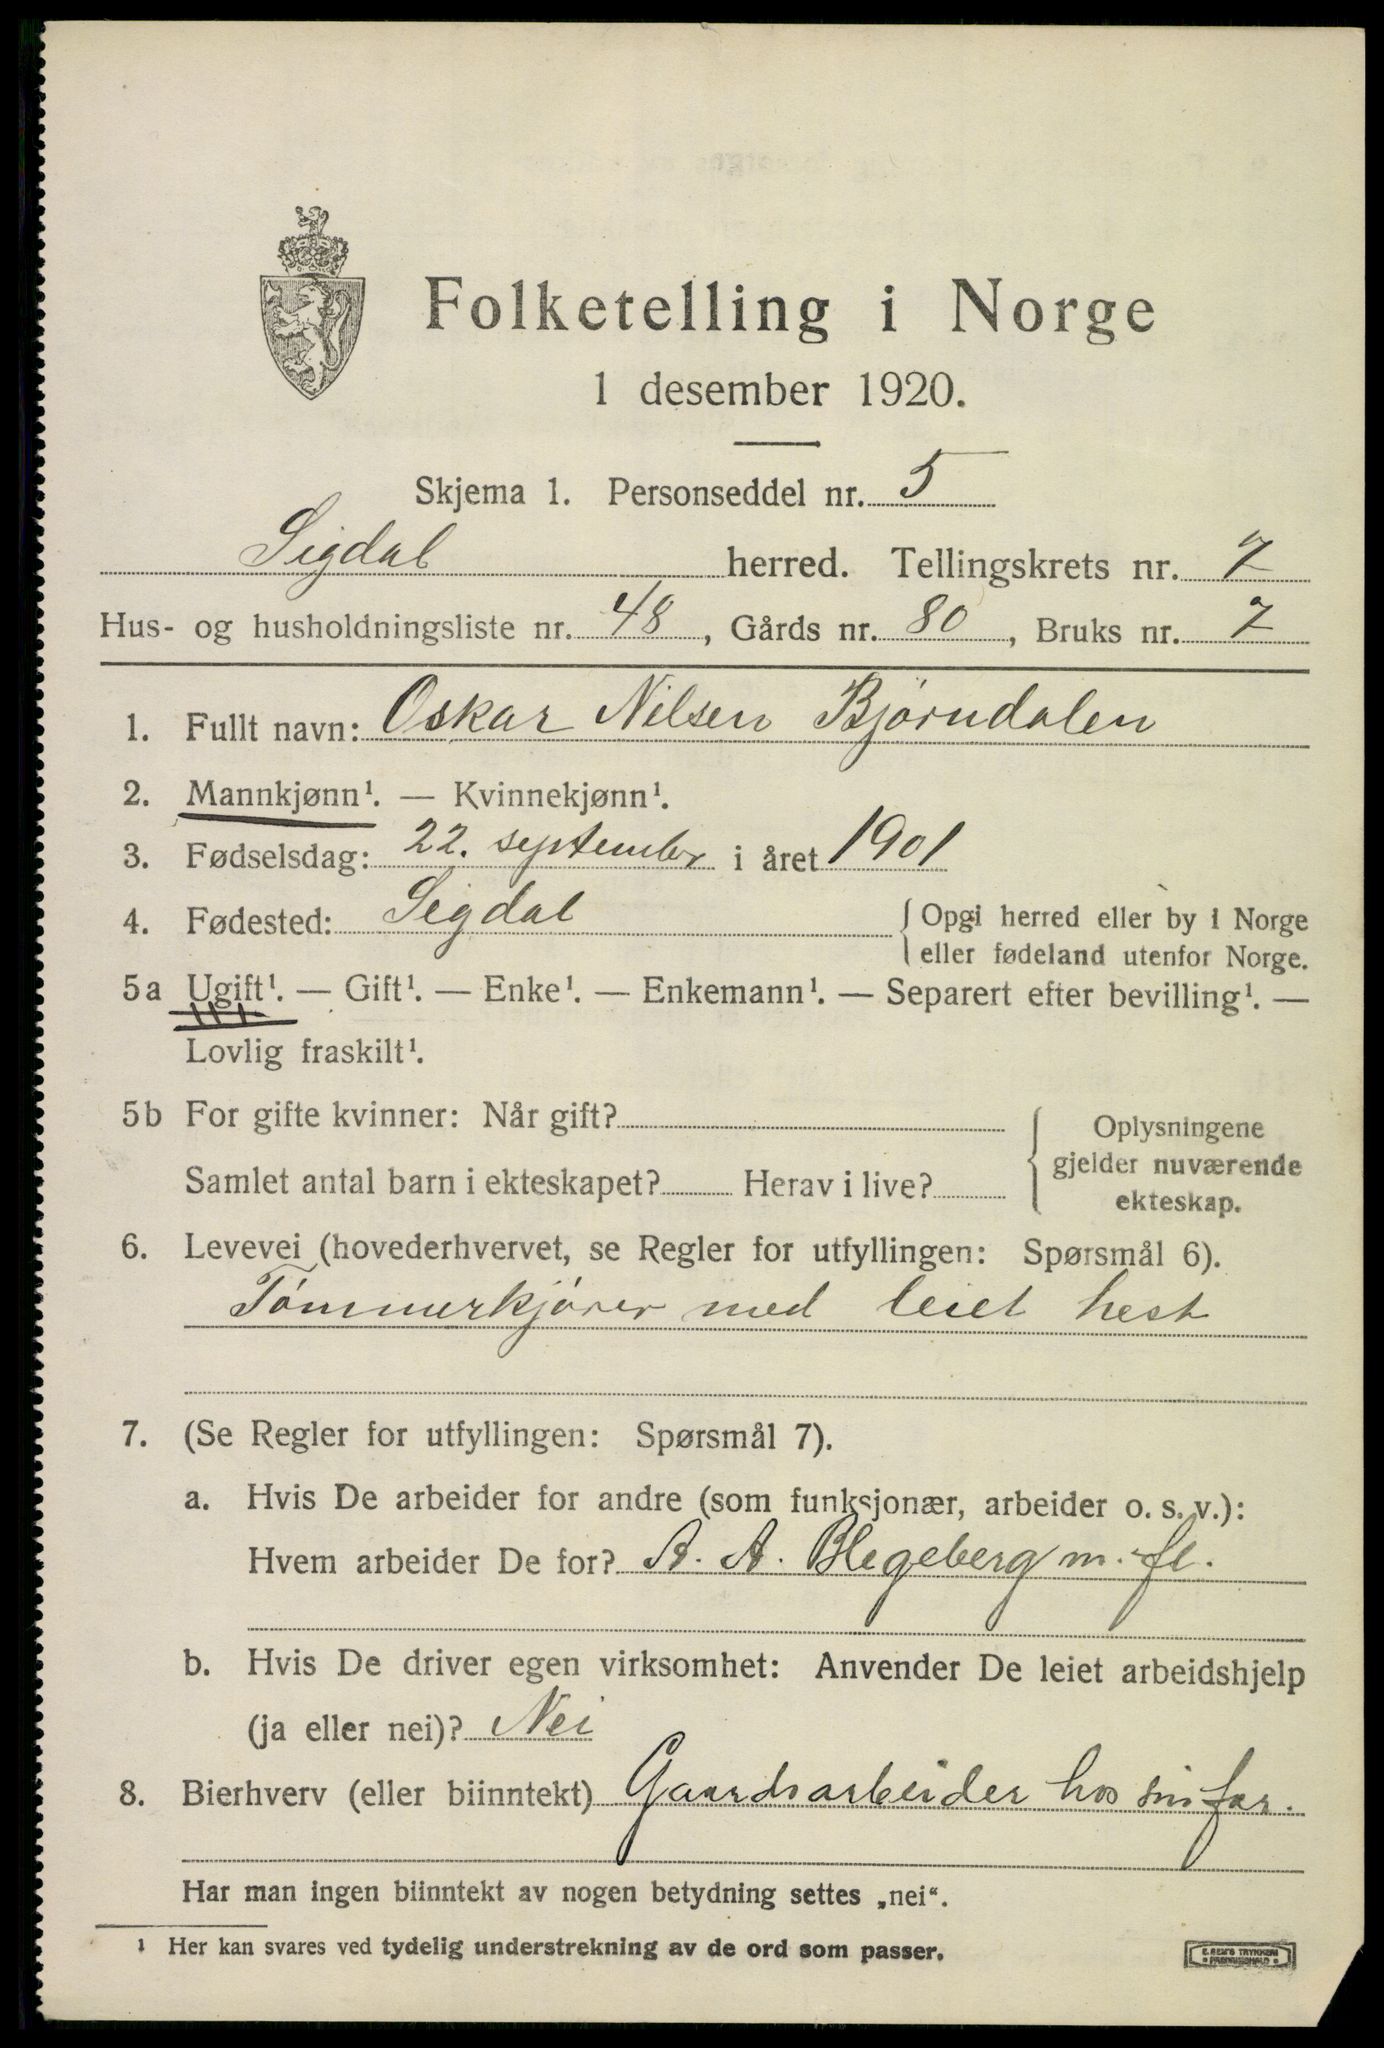 Folketelling i Norge
1 desember 1920.
Skjema 1. Personseddel nr. 5
Sigdal herred. Tellingskrets nr. 7
Hus- og husholdningsliste nr. 48, Gårds nr. 80, Bruks nr. 7
1. Fullt navn: Oskar Nilsen Bjørndalen
2. Mannkjønn¹. — Kvinnekjønn¹.
3. Fødselsdag: 22. september i året 1901
4. Fødested: Sigdal
{ Opgi herred eller by i Norge
eller fødeland utenfor Norge.
5a Ugift¹. — Gift¹. — Enke¹. — Enkemann¹. — Separert efter bevilling¹. —
Lovlig fraskilt¹.
5b For gifte kvinner: Når gift?
Samlet antal barn i ekteskapet? Herav i live?
{ Oplysningene
gjelder nuværende
ekteskap.
6. Levevei (hovederhvervet, se Regler for utfyllingen: Spørsmål 6).
Tömmerkjörer med leiet hest
7. (Se Regler for utfyllingen: Spørsmål 7).
a. Hvis De arbeider for andre (som funksjonær, arbeider o. s. v.):
Hvem arbeider De for? A. A. Blegeberg m. fl.
b. Hvis De driver egen virksomhet: Anvender De leiet arbeidshjelp
(ja eller nei)? Nei
8. Bierhverv (eller biinntekt) Gaardsarbeider hos sin far.
Har man ingen biinntekt av nogen betydning settes „nei“.
¹ Her kan svares ved tydelig understrekning av de ord som passer.